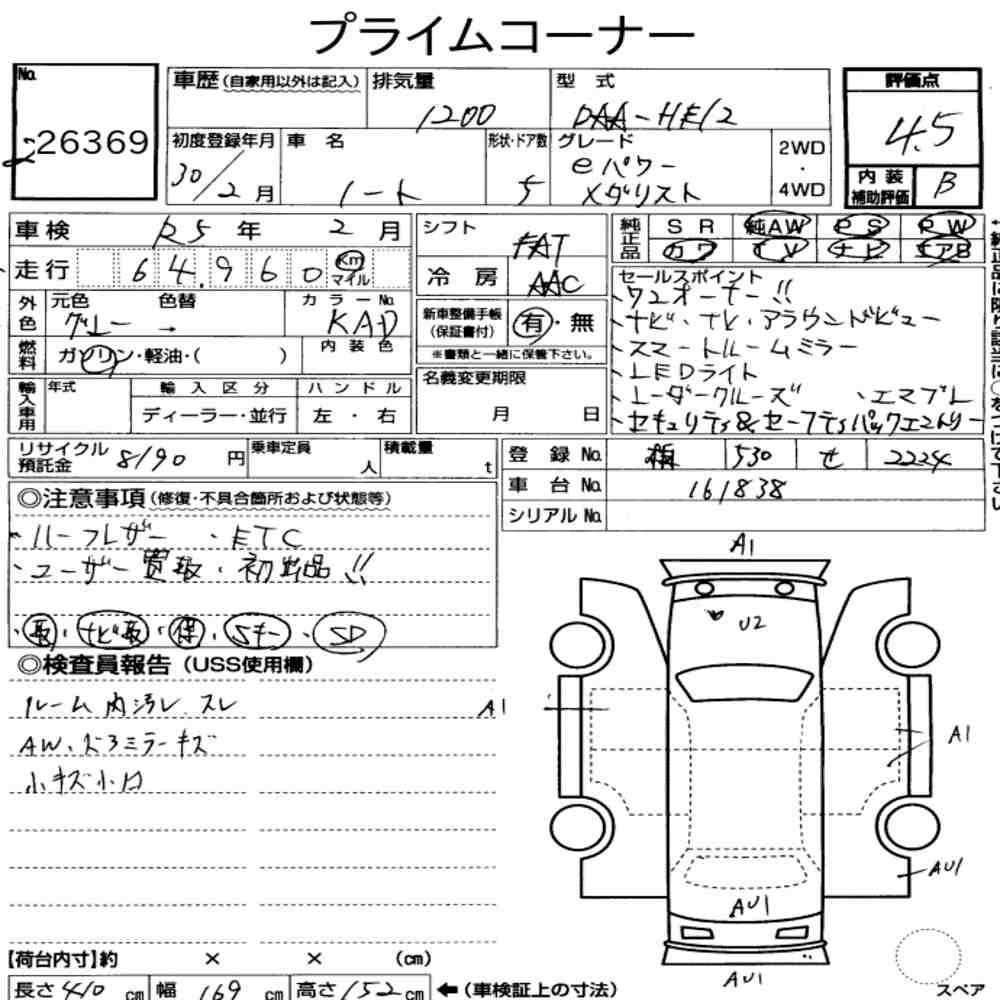 プライムコーナー
No.
26369
車歴 (自家用以外は記入)
排気量
1200
型式
DAA-HE12
評価点
4.5
内装
補助評価
B
初度登録年月
30/2月
車名
ノート
形状・ドア数
5
グレード
eパワー
メダリスト
2WD
・
4WD
車検 R5年 2月
走行 64.960 Km
マイル
シフト
FAT
冷房
AAC
純正品
SR 純AW PS PW
カワ TV ナビ エアB
外色
元色 色替
グレー →
カラーNo.
KAD
内装色
燃料
ガソリン・軽油・( )
新車整備手帳
(保証書付)
有・無
※書類と一緒に保管下さい。
セールスポイント
、ワンオーナー!!
、ナビ・TV・アラウンドビュー
、スマートルームミラー
、LEDライト
、レーダークルーズ 、エマブレ
、セキュリティ&セーフティパックエントリー
輸入車用
年式
輸入区分
ディーラー・並行
ハンドル
左・右
名義変更期限
月 日
リサイクル
預託金
8190円
乗車定員
人
積載量
t
登録No. 530 せ 2224
車台No. 161838
シリアルNo.
◎注意事項 (修復・不具合箇所および状態等)
・ハーフレザー ・ETC
・ユーザー買取・初出品!!
・取・ナビ取・保・Sキー・SD
◎検査員報告 (USS使用欄)
ルーム内汚レ.スレ
AW、ドアミラーキズ
小キズ小凹
A1
U2
A1
A1
AU1
AU1
AU1
スペア
【荷台内寸】約 × × (cm)
長さ 410 cm 幅 169 cm 高さ 152 cm ←(車検証上の寸法)